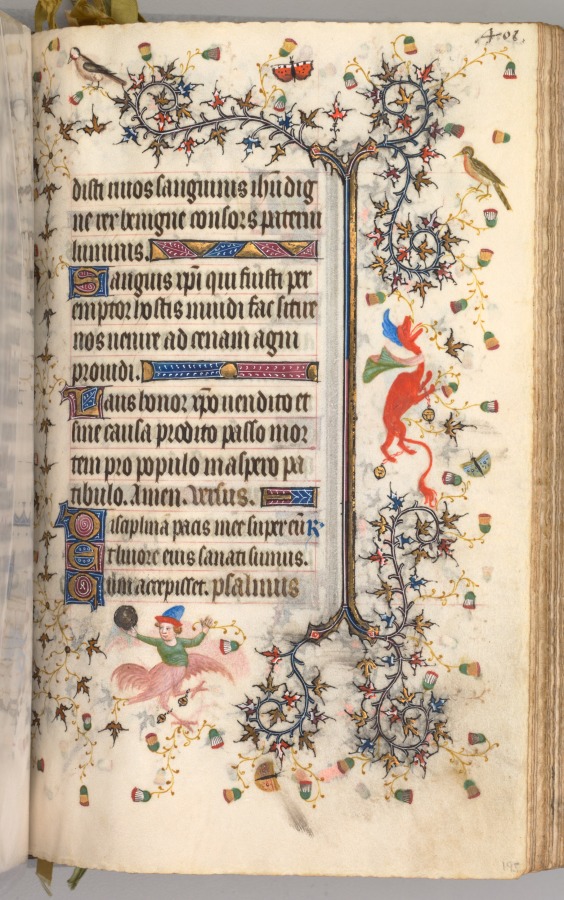 408
disti nuos sanguinis ihu dig
ne rex benigne consors paterni
luminis.
Sanguis xpi qui fuisti per
emptor hostis inuidi fac siture
nos uenire ad cenam agni
prouidi.
Laus honor xpo uendito et
sine causa prodito passo mor
tem pro populo in aspero pa
tibulo. Amen. Versus.
Disciplina pacis nre super eũ R
Et liuore eius sanati sumus.
Cum accepisset. psalmus
195